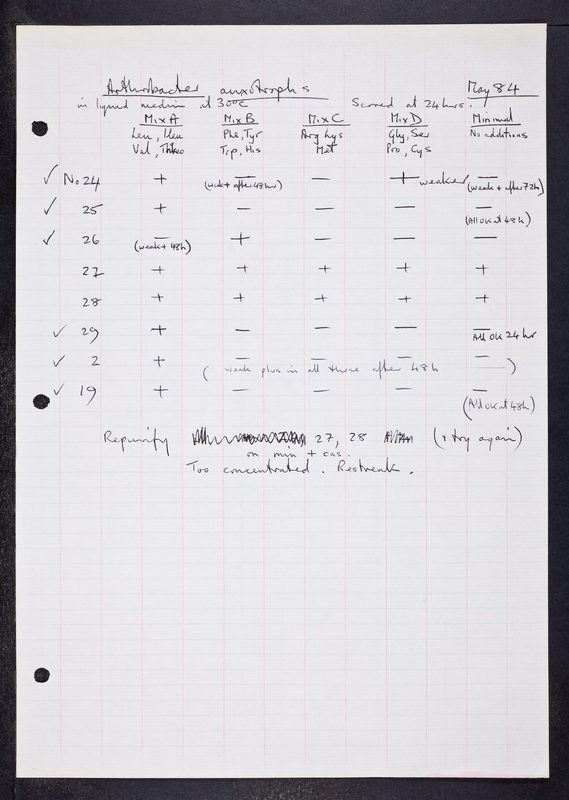 Arthrobacter auxotrophs May 84
in liquid medium at 30°C Scored at 24hrs.
Mix A Mix B Mix C Mix D Minimal
Leu, Ileu Phe, Tyr Arg Lys Gly, Ser No additions
Val, Threo Trp, His Met Pro, Cys
✓ No 24 + — — + weaker —
(weak + after 48hr) (weak + after 72h)
✓ 25 + — — — —
(All ok at 48h)
✓ 26 — + — — —
(weak + 48h)
27 + + + + +
28 + + + + +
✓ 29 + — — — —
All OK 24 hr
✓ 2 + — — — —
( weak plus in all these after 48h — )
✓ 19 + — — — —
(All ok at 48h)
Repurify 27, 28 (& try again)
on min + cas.
Too concentrated. Restreak.